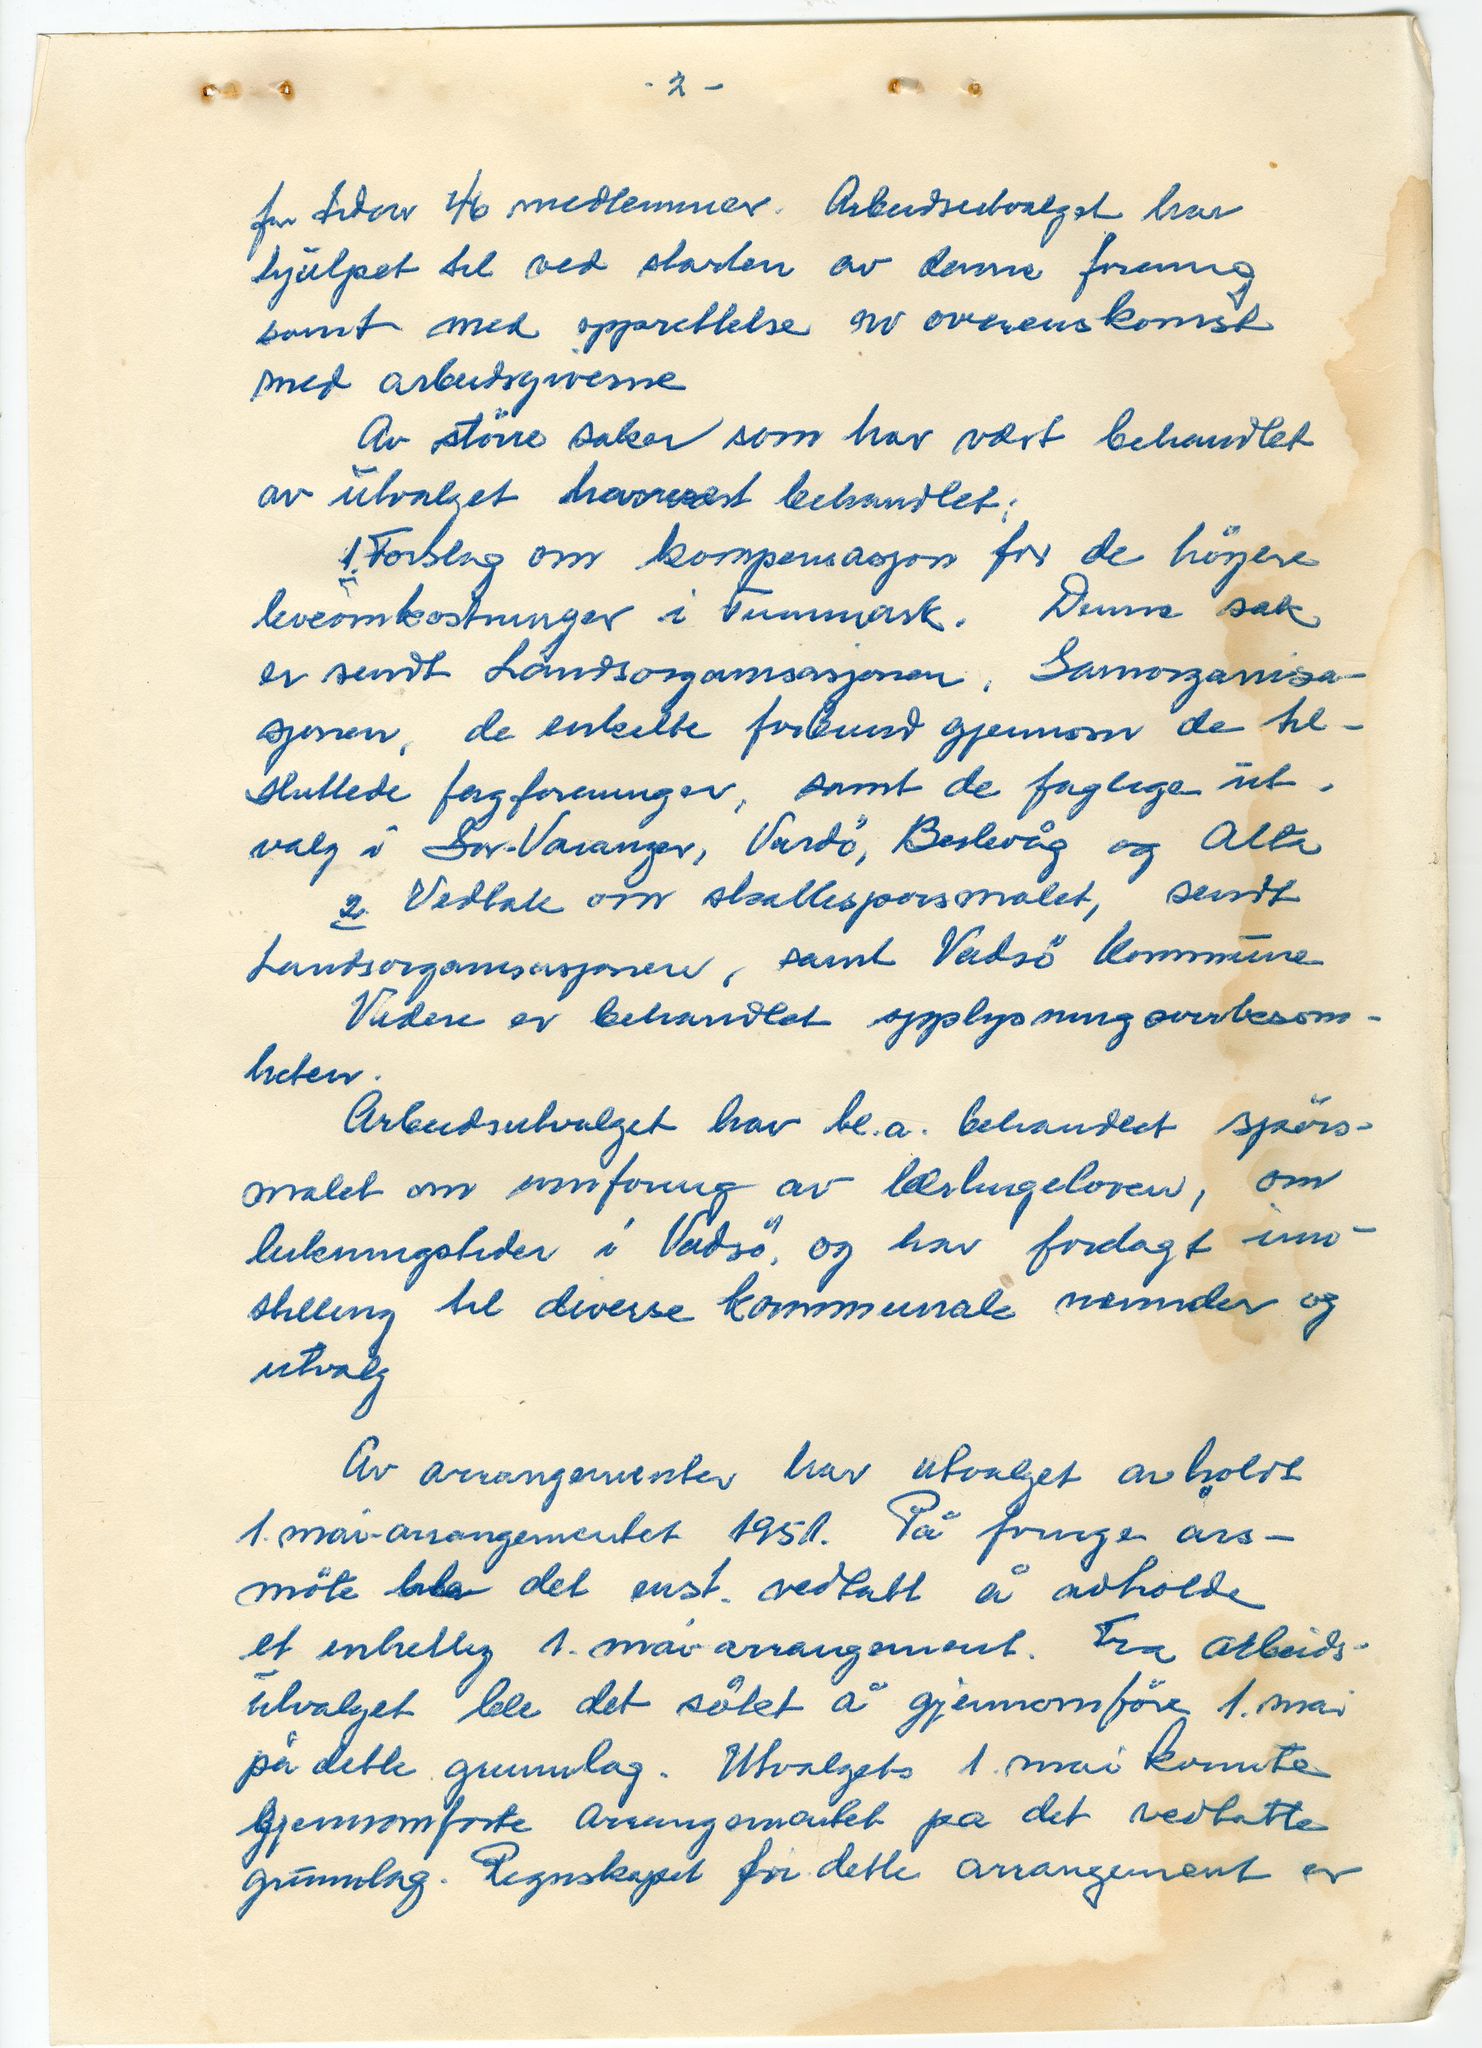 - 2 -
for tiden 46 medlemmer. Arbeidsutvalget har
hjulpet til ved starten av denne forening
samt med opprettelse av overenskomst
med arbeidsgiverne
Av större saker som har vært behandlet
av utvalget behandlet:
1. Forslag om kompensasjon for de höyere
leveomkostninger i Finnmark. Denne sak
er sendt Landsorganisasjonen, Samorganisa-
sjonen, de enkelte forbund gjennom de til-
sluttede fagforeninger, samt de faglige ut-
valg i Sör-Varanger, Vardö, Berlevåg og Alta
2. Vedtak om skattespörsmalet, sendt
Landsorganisasjonen, samt Vadsö Kommune
Videre er behandlet opplysningsvirksom-
heten.
Arbeidsutvalget har bl.a. behandlet spörs-
malet om innföring av lærlingeloven, om
lukningstider i Vadsö, og har foretagt inn-
stilling til diverse kommunale nemnder og
utvalg
Av arrangementer har utvalget avholdt
1. mai-arrangementet 1951. På forrige års-
möte ble det enst. vedtatt å avholde
et enhetlig 1. mai arrangement. Fra arbeids-
utvalget ble det sökt å gjennomföre 1. mai
på dette grunnlag. Utvalgets 1. mai komite
gjennomförte arrangementet på det vedtatte
grunnlag. Regnskapet for dette arrangement er